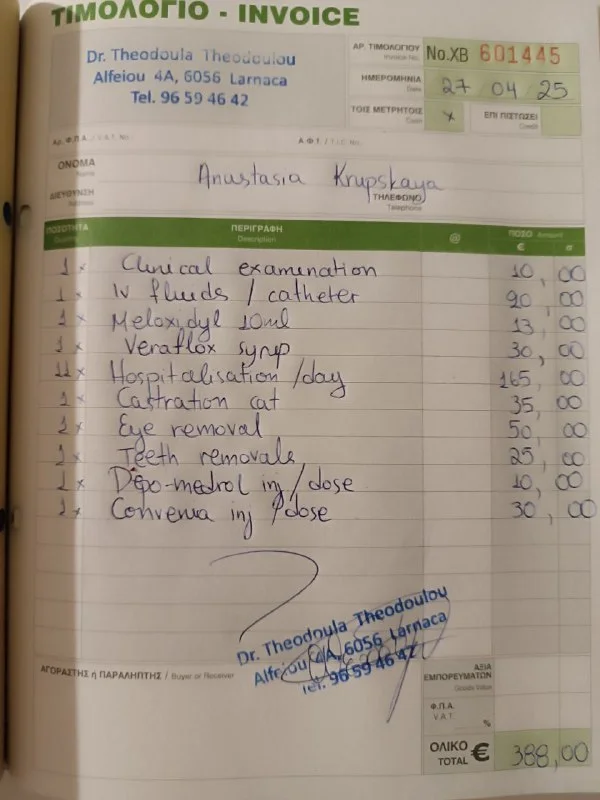 ΤΙΜΟΛΟΓΙΟ - INVOICE
Dr. Theodoula Theodoulou
Alfeiou 4A, 6056 Larnaca
Tel. 96 59 46 42
ΑΡ. ΤΙΜΟΛΟΓΙΟΥ No.XB 601445
Invoice No.
ΗΜΕΡΟΜΗΝΙΑ 27 04 25
Date
ΤΟΙΣ ΜΕΤΡΗΤΟΙΣ x ΕΠΙ ΠΙΣΤΩΣΕΙ
Cash Credit
Αρ. Φ.Π.Α. / V.A.T. No. Α.Φ.Τ. / T.I.C. No.
ΟΝΟΜΑ Anastasia Krupskaya
Name
ΔΙΕΥΘΥΝΣΗ ΤΗΛΕΦΩΝΟ
Address Telephone
ΠΟΣΟΤΗΤΑ ΠΕΡΙΓΡΑΦΗ @ ΠΟΣΟ Amount
Description € σ
1x Clinical examination 10,00
1x IV fluids / catheter 20,00
1x Meloxidyl 10ml 13,00
1x Veraflox syrup 30,00
11x Hospitalisation /day 165,00
1x Castration cat 35,00
1x Eye removal 50,00
1x Teeth removals 25,00
1x Depo-medrol inj /dose 10,00
1x Convenia inj /dose 30,00
Dr. Theodoula Theodoulou
Alfeiou 4A, 6056 Larnaca
Tel. 96 59 46 42
ΑΓΟΡΑΣΤΗΣ ή ΠΑΡΑΛΗΠΤΗΣ / Buyer or Receiver
ΑΞΙΑ
ΕΜΠΟΡΕΥΜΑΤΩΝ
Goods Value
Φ.Π.Α.
V.A.T. %
ΟΛΙΚΟ
TOTAL € 388,00